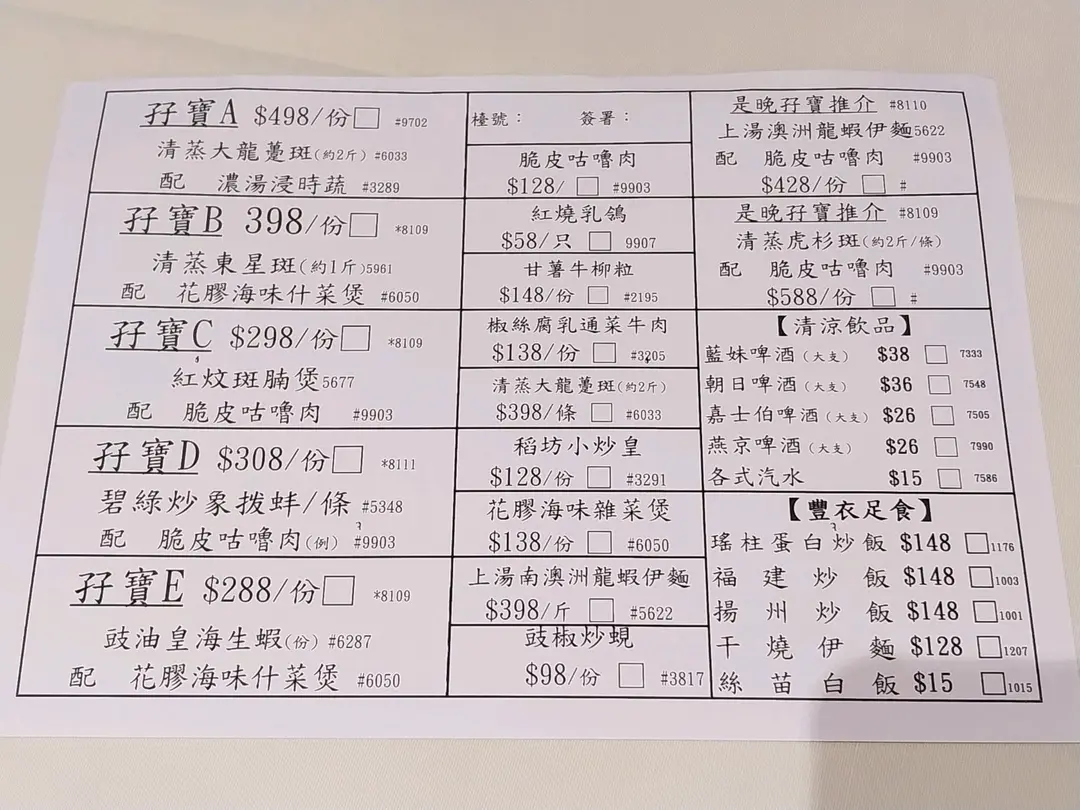 孖寶A $498/份□ #9702
清蒸大龍躉斑(約2斤) #6033
配 濃湯浸時蔬 #3289
孖寶B 398/份□ *8109
清蒸東星斑(約1斤)5961
配 花膠海味什菜煲 #6050
孖寶C $298/份□ *8109
紅炆斑腩煲5677
配 脆皮咕嚕肉 #9903
孖寶D $308/份□ *8111
碧綠炒象拨蚌/條 #5348
配 脆皮咕嚕肉(例) #9903
孖寶E $288/份□ *8109
豉油皇海生蝦(份) #6287
配 花膠海味什菜煲 #6050
檯號： 簽署：
脆皮咕嚕肉
$128/ □ #9903
紅燒乳鴿
$58/只 □ 9907
甘薯牛柳粒
$148/份 □ #2195
椒絲腐乳通菜牛肉
$138/份 □ #3205
清蒸大龍躉斑(約2斤)
$398/條 □ #6033
稻坊小炒皇
$128/份 □ #3291
花膠海味雜菜煲
$138/份 □ #6050
上湯南澳洲龍蝦伊麵
$398/斤 □ #5622
豉椒炒蜆
$98/份 □ #3817
是晚孖寶推介 #8110
上湯澳洲龍蝦伊麵5622
配 脆皮咕嚕肉 #9903
$428/份 □ #
是晚孖寶推介 #8109
清蒸虎杉斑(約2斤/條)
配 脆皮咕嚕肉 #9903
$588/份 □ #
【清涼飲品】
藍妹啤酒(大支) $38 □ 7333
朝日啤酒(大支) $36 □ 7548
嘉士伯啤酒(大支) $26 □ 7505
燕京啤酒(大支) $26 □ 7990
各式汽水 $15 □ 7586
【豐衣足食】
瑤柱蛋白炒飯 $148 □1176
福建炒飯 $148 □1003
揚州炒飯 $148 □1001
干燒伊麵 $128 □1207
絲苗白飯 $15 □1015